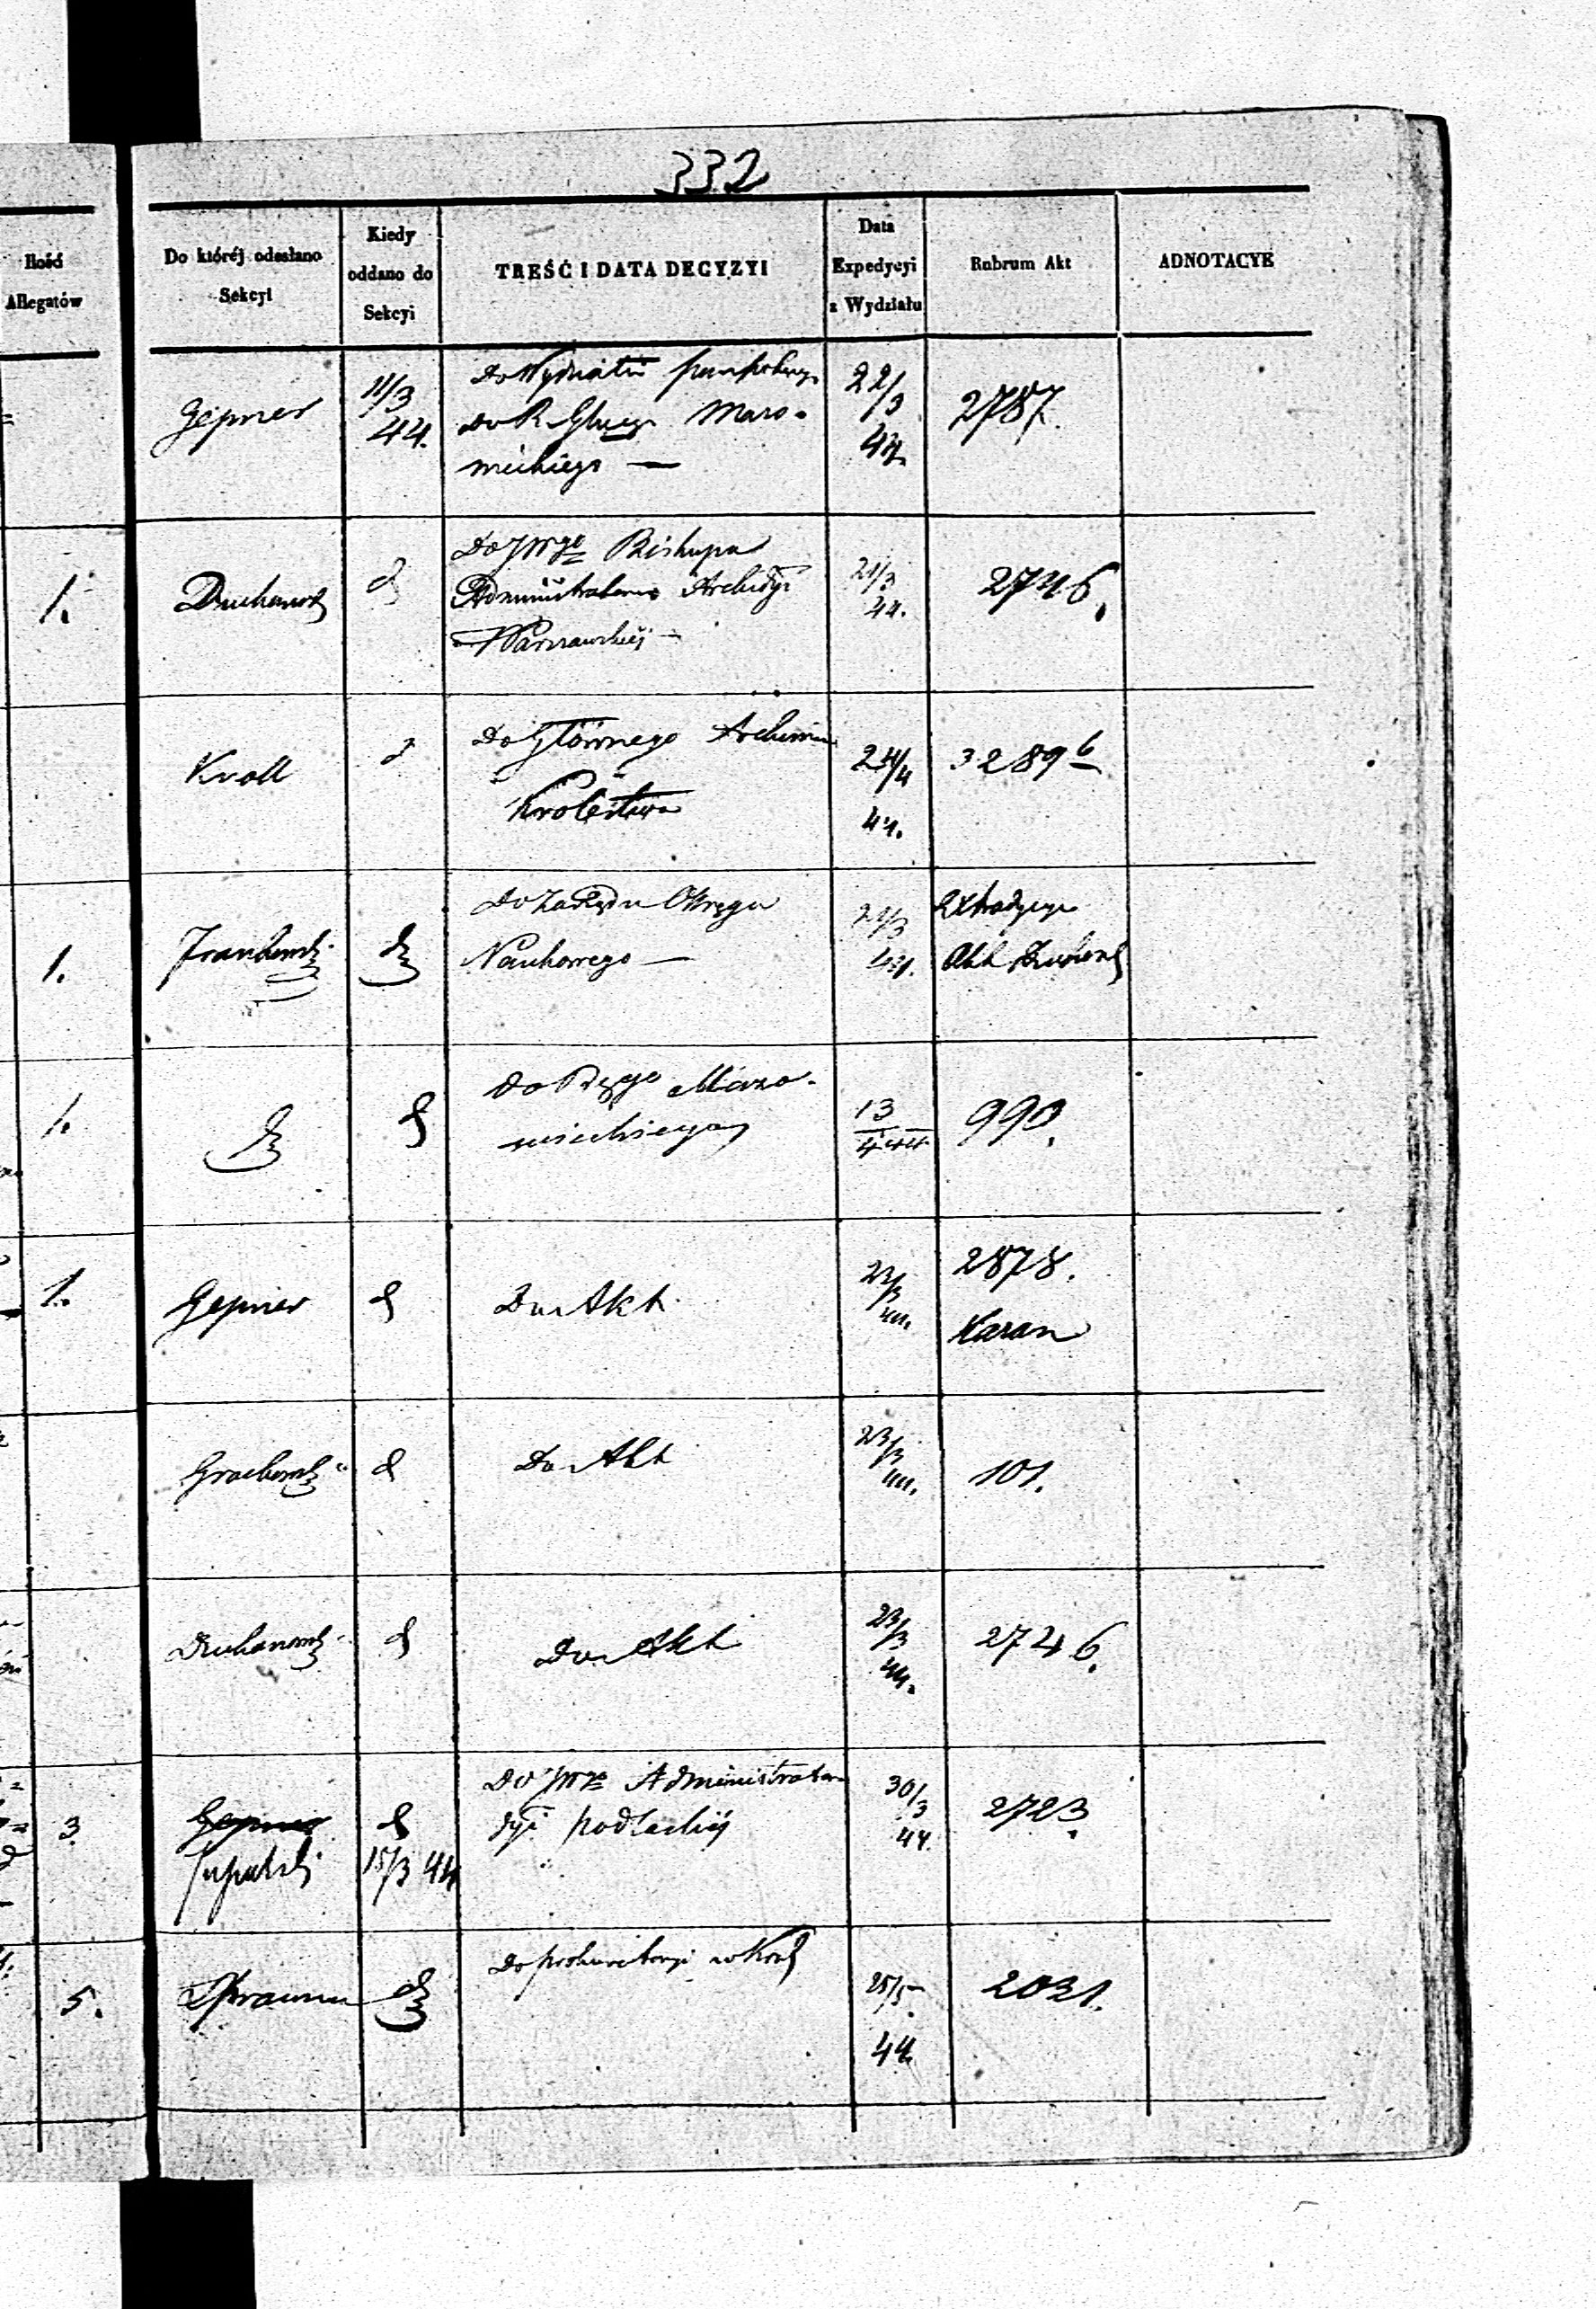 332
Ilość
Allegatów
Do któréj odesłano
Sekcyi
Kiedy
oddano do
Sekcyi
TREŚĆ I DATA DECYZYI
Data
Expedycyi
z Wydziału
Rubrum Akt
ADNOTACYE
Gepner
11/3
44.
Do Wydziału
do R. Głwgo Mazo-
wieckiego —
22/3
44.
2787.
1.
d
Do JWgo Biskupa
Administratora Archidyi
Warszawskiéj —
21/3
44.
2746.
Kroll
d
Do Głównego Archiwum
Królestwa
24/4
44.
3289 b
1.
d
Do Zarządu Okręgu
Naukowego —
21/3
44.
Akt
1.
d
d
Do Mazo-
wieckiego
13
4 44
990.
1.
Gepner
d
Do Akt
23/3
44.
2878.
Karan
d
Do Akt
23/3
44.
101.
d
Do Akt
23/3
44.
2746.
3
Gepner
d
15/3 44
Do JWgo Administratora
dyi podlaskiéj
30/3
44.
2723.
5.
d
Do prokuratoryi w Król
25/5
44
2031.